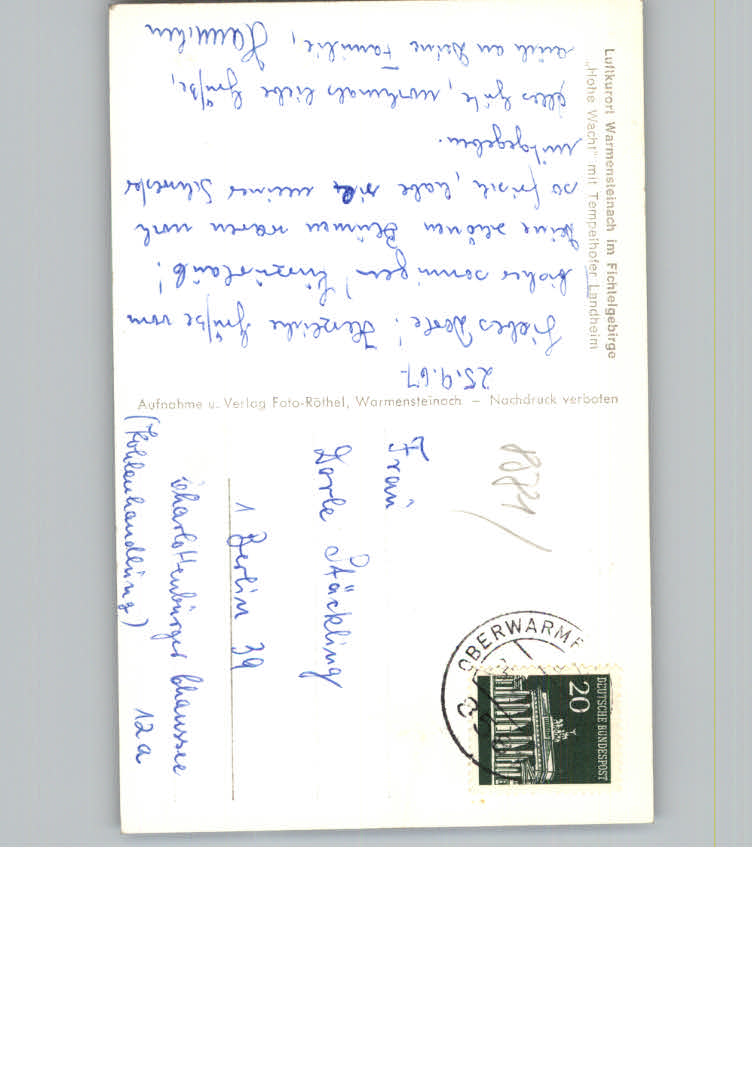 Luftkurort Warmensteinach im Fichtelgebirge
„Hohe Wacht" mit Tempelhofer Landheim
25.9.67.
Liebes Dorle! Herzliche Grüße vom
bisher sonnigen Kurzurlaub!
Deine schönen Blumen waren noch
so frisch, habe sie meiner Schwester
mitgegeben.
Alles Gute, nochmals liebe Grüße,
auch an Deine Familie,
Aufnahme u. Verlag Foto-Röthel, Warmensteinach — Nachdruck verboten
8581
Frau
Dorle Stäckling
1 Berlin 39
Charlottenburger Chaussee
12a
(Kohlenhandlung)
OBERWARME
DEUTSCHE BUNDESPOST
20